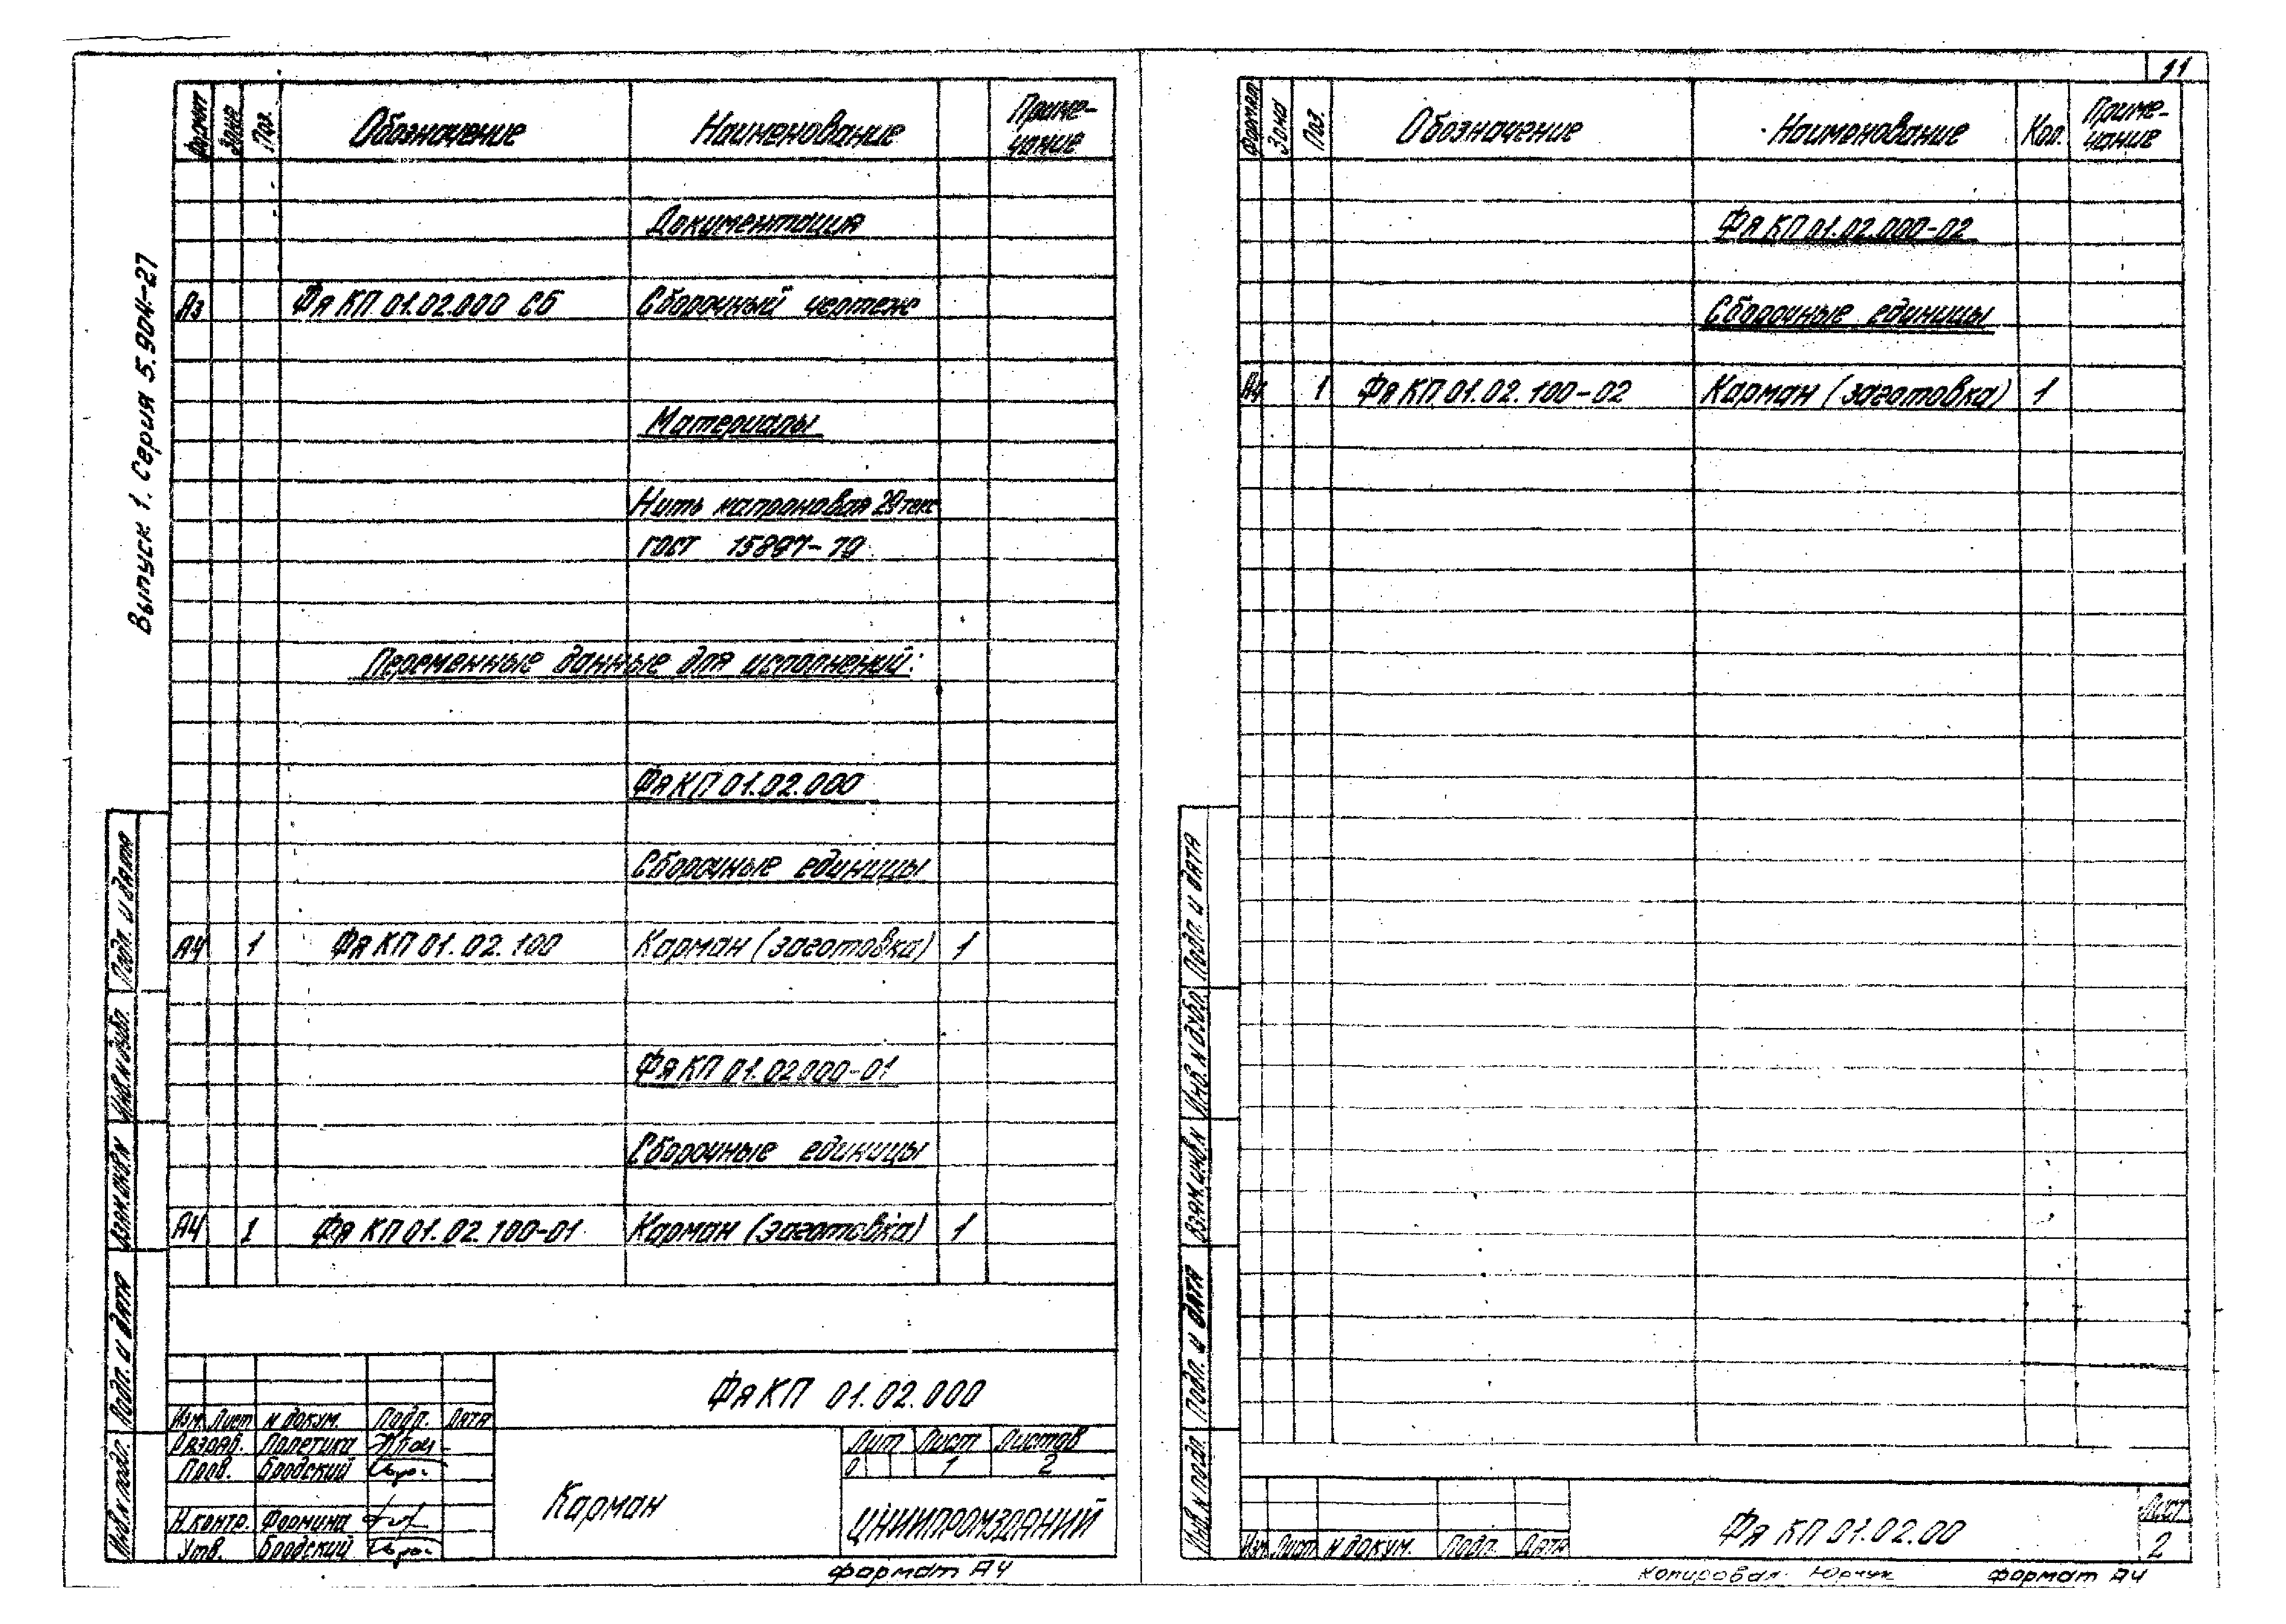 Выпуск 1. Серия 5.904-27
Формат Зона Поз. Обозначение Наименование Приме-
чание
Документация
А3 ФяКП 01.02.000 СБ Сборочный чертеж
Материалы
Нить капроновая 29текс
ГОСТ 15897-79
Переменные данные для исполнений:
ФяКП 01.02.000
Сборочные единицы
А4 1 ФяКП 01.02.100 Карман (заготовка) 1
ФяКП 01.02000-01
Сборочные единицы
А4 1 ФяКП 01.02 100-01 Карман (заготовка) 1
Подп. и дата
Инв. № дубл.
Взам. инв. №
Подп. и дата
Инв. № подл.
ФяКП 01.02.000
Изм. Лист № докум. Подп. Дата
Разраб. Полетика
Пров. Бродский
Н.контр. Фомина
Утв. Бродский
Карман
Лит Лист Листов
О 1 2
ЦНИИПРОМЗДАНИЙ
Формат А4
11
Формат Зона Поз. Обозначение Наименование Кол. Приме-
чание
ФяКП 01.02.000-02
Сборочные единицы
А4 1 ФяКП 01.02.100-02 Карман (заготовка) 1
Подп. и дата
Инв. № дубл.
Взам. инв. №
Подп. и дата
Инв. № подл.
Изм Лист № докум. Подп. Дата
ФяКП 01.02.00
Лист
2
Копировал: Юрчук Формат А4